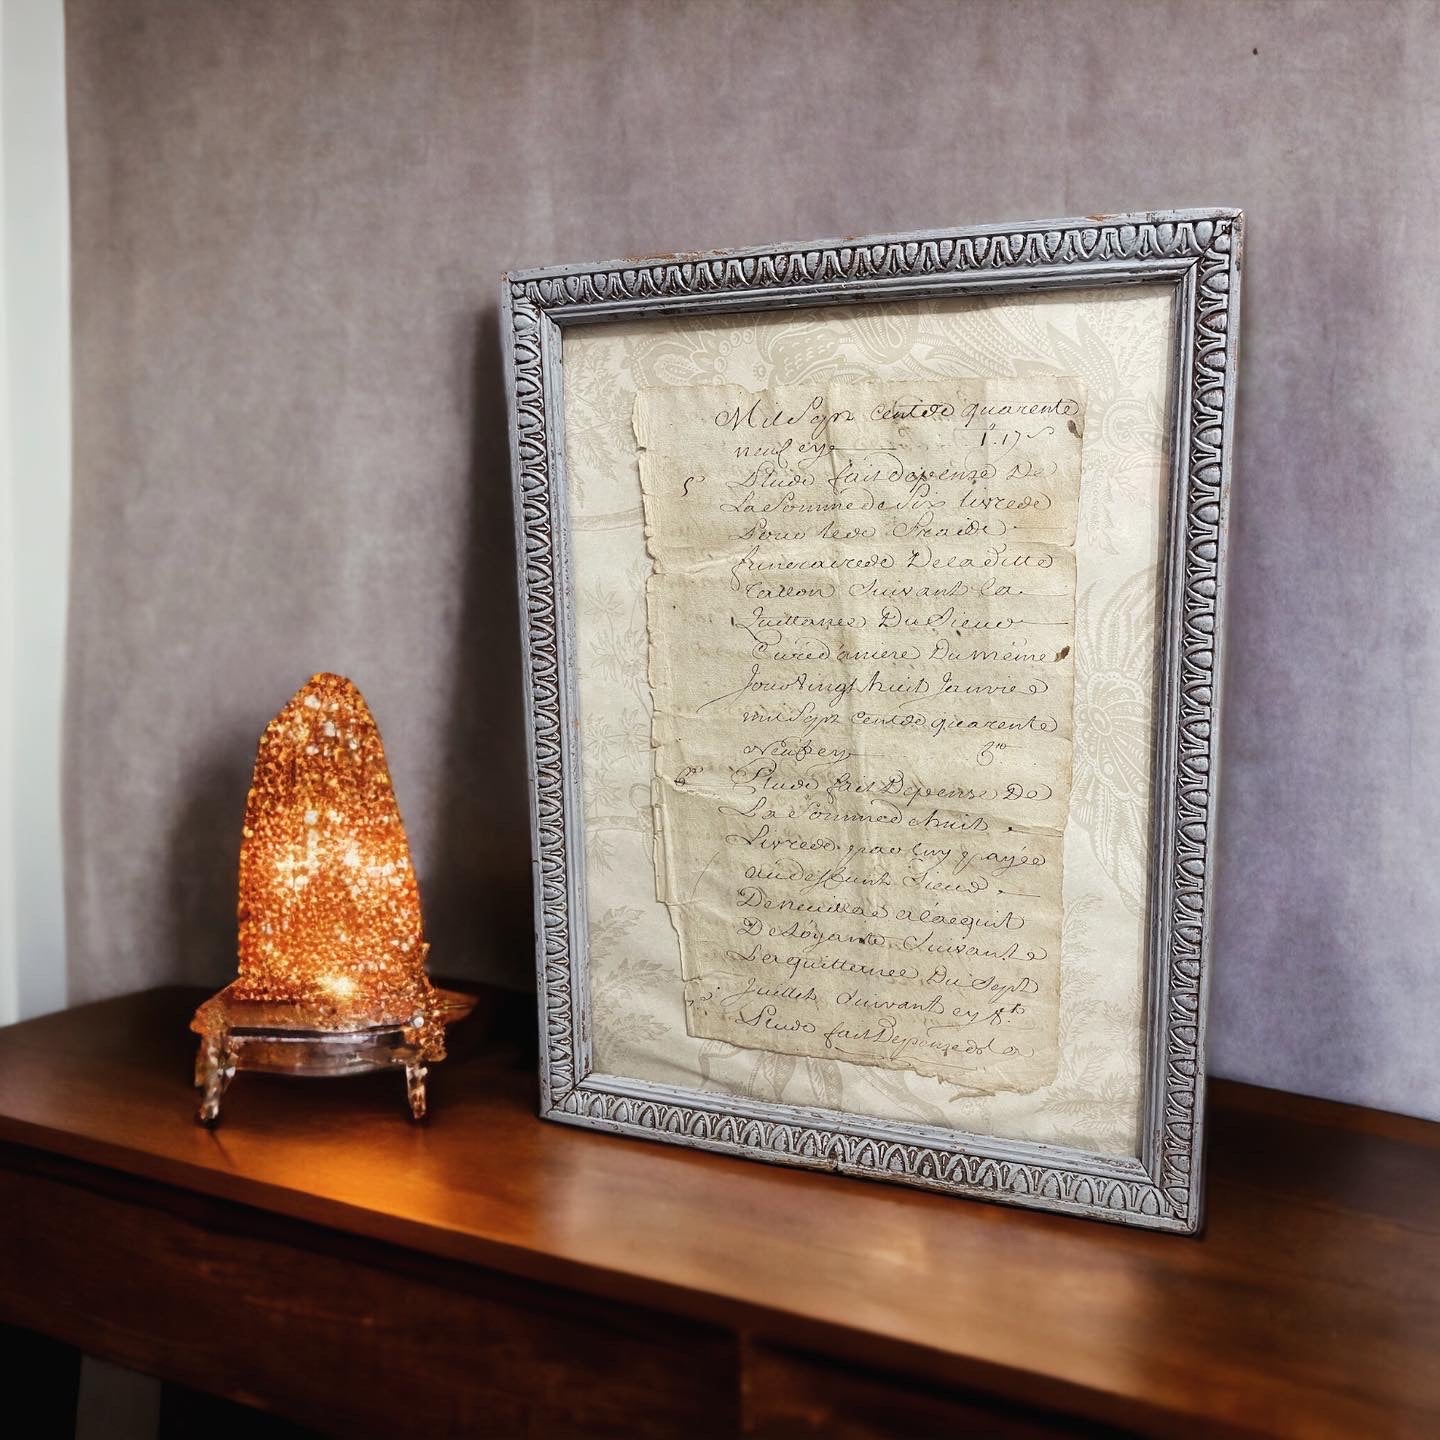 Mil Sept cents quarente
neuf cy 1.17 s
5° Plus fait depense De
La Somme de Six livres
Pour les Frais
funeraires De la ditte
Suivant la
Quittance Du Sieur
Curé Du même
Jour vingt huit Janvier
mil Sept cents quarente
Neuf cy 6
6° Plus fait Depense De
La Somme de huit
Livres par luy payée
au deffunt Sieur
De a l'acquit
De Suivante
La quittance Du Sept
Juillet Suivant cy
Plus fait Depense de la